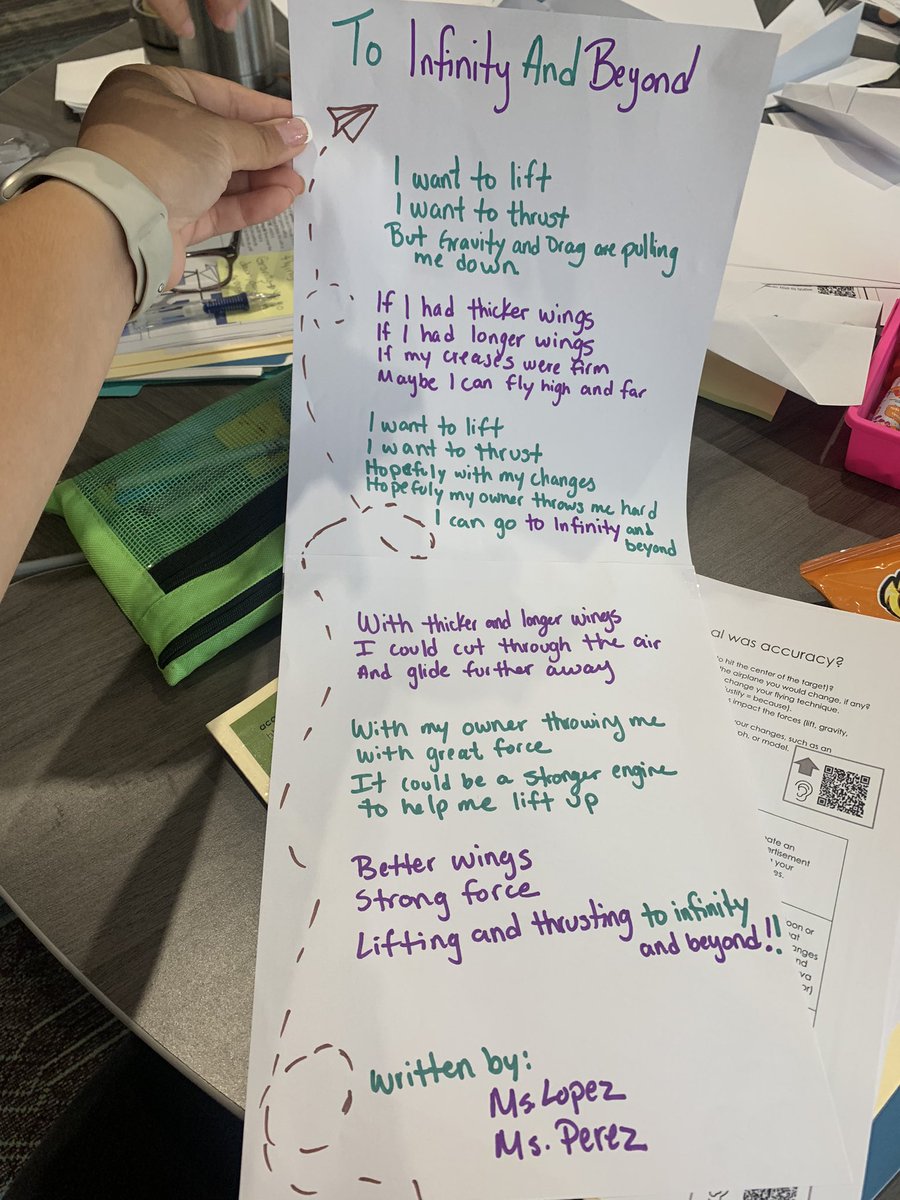 To Infinity And Beyond
I want to lift
I want to thrust
But Gravity and Drag are pulling
me down.
If I had thicker wings
If I had longer wings
If my creases were firm
Maybe I can fly high and far
I want to lift
I want to thrust
Hopefuly with my changes
Hopefuly my owner throws me hard
I can go to Infinity and
beyond
With thicker and longer wings
I could cut through the air
And glide further away
With my owner throwing me
with great force
It could be a stronger engine
to help me lift up
Better wings
Strong force
Lifting and thrusting to infinity
and beyond!!
written by:
Ms Lopez
Ms. Perez
al was accuracy?
to hit the center of the target)?
the airplane you would change, if any?
change your flying technique.
ustify = because).
impact the forces (lift, gravity,
our changes, such as an
ph, or model.
ate an
ertisement
your
es.
oon or
at
anges
nd
va
or)